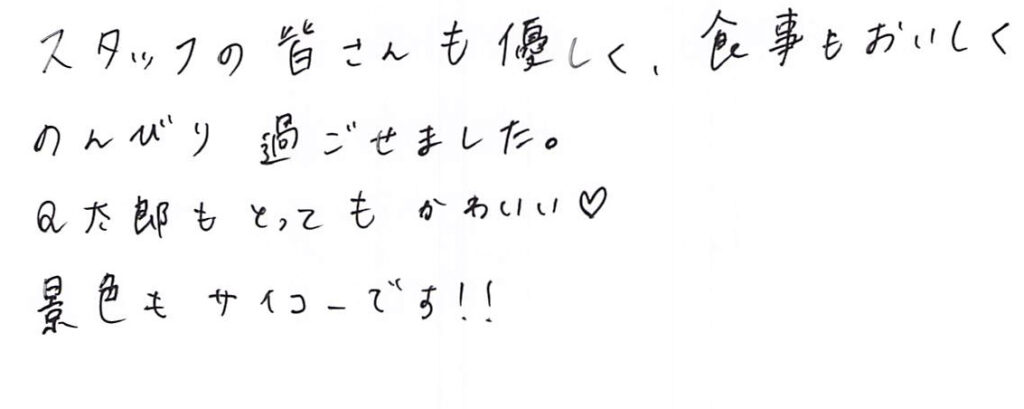 スタッフの皆さんも優しく、食事もおいしく
のんびり過ごせました。
Q太郎もとってもかわいい♡
景色もサイコーです!!